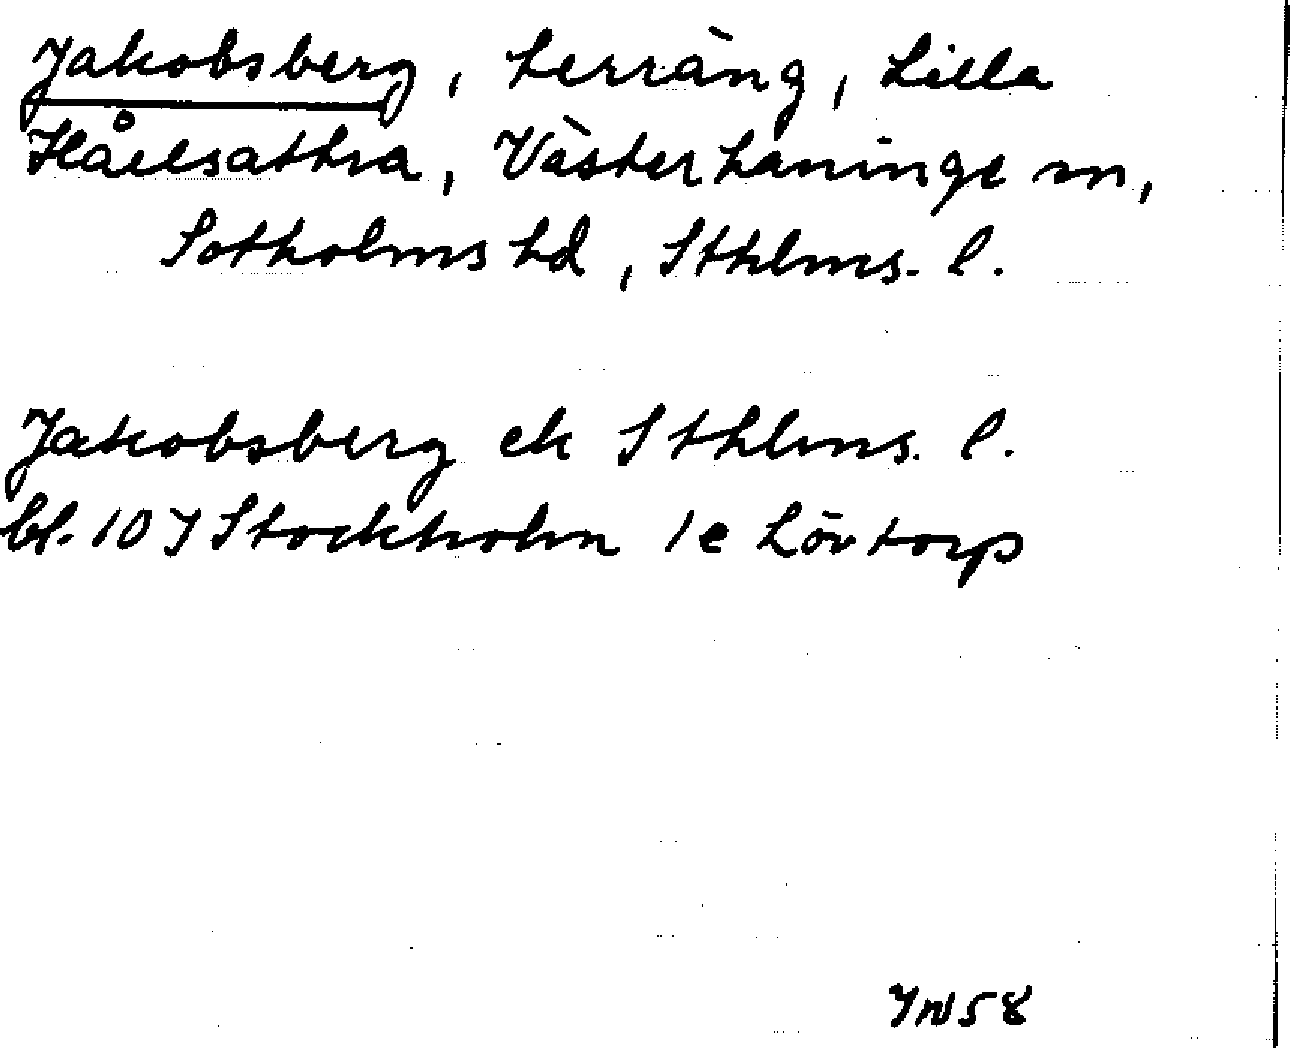 Jakobsberg, terräng, Lilla
Håcksättra, Västerhaninge sn,
Sotholms hd, Sthlms. l.
Jakobsberg ek Sthlms. l.
bl. 10 I Stockholm 1e Lövtorp
IN 58